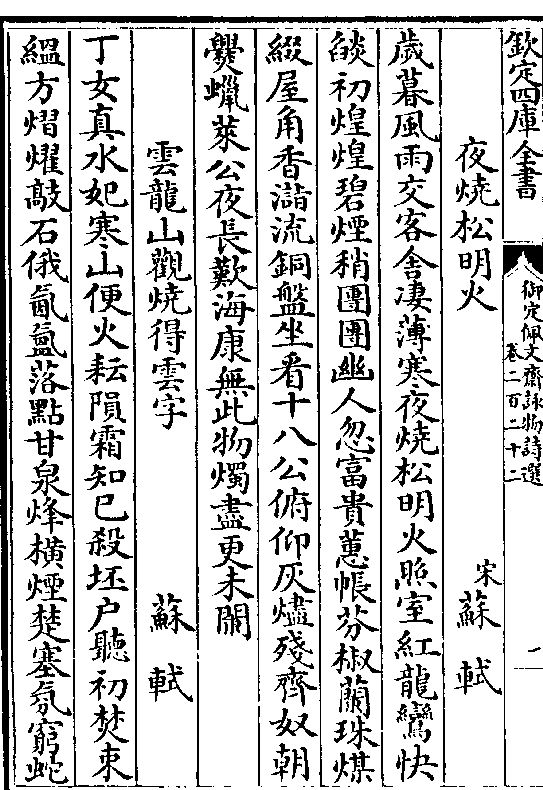 欽定四庫全書
御定佩文齋詠物詩選
卷二百二十二
一
夜燒松明火
宋
蘇軾
歲暮風雨交客舍凄薄寒夜燒松明火照室紅龍鸞快
燄初煌煌碧煙稍團團幽人忽富貴蕙帳芬椒蘭珠煤
綴屋角香㵫流銅盤坐看十八公俯仰灰燼殘齊奴朝
爨蠟萊公夜長歎海康無此物燭盡更未闌
雲龍山觀燒得雲字
蘇軾
丁女真水妃寒山便火耘隕霜知已殺坯户聽初焚束
緼方熠燿敲石俄氤氲落點甘泉烽横煙楚塞氛窮蛇